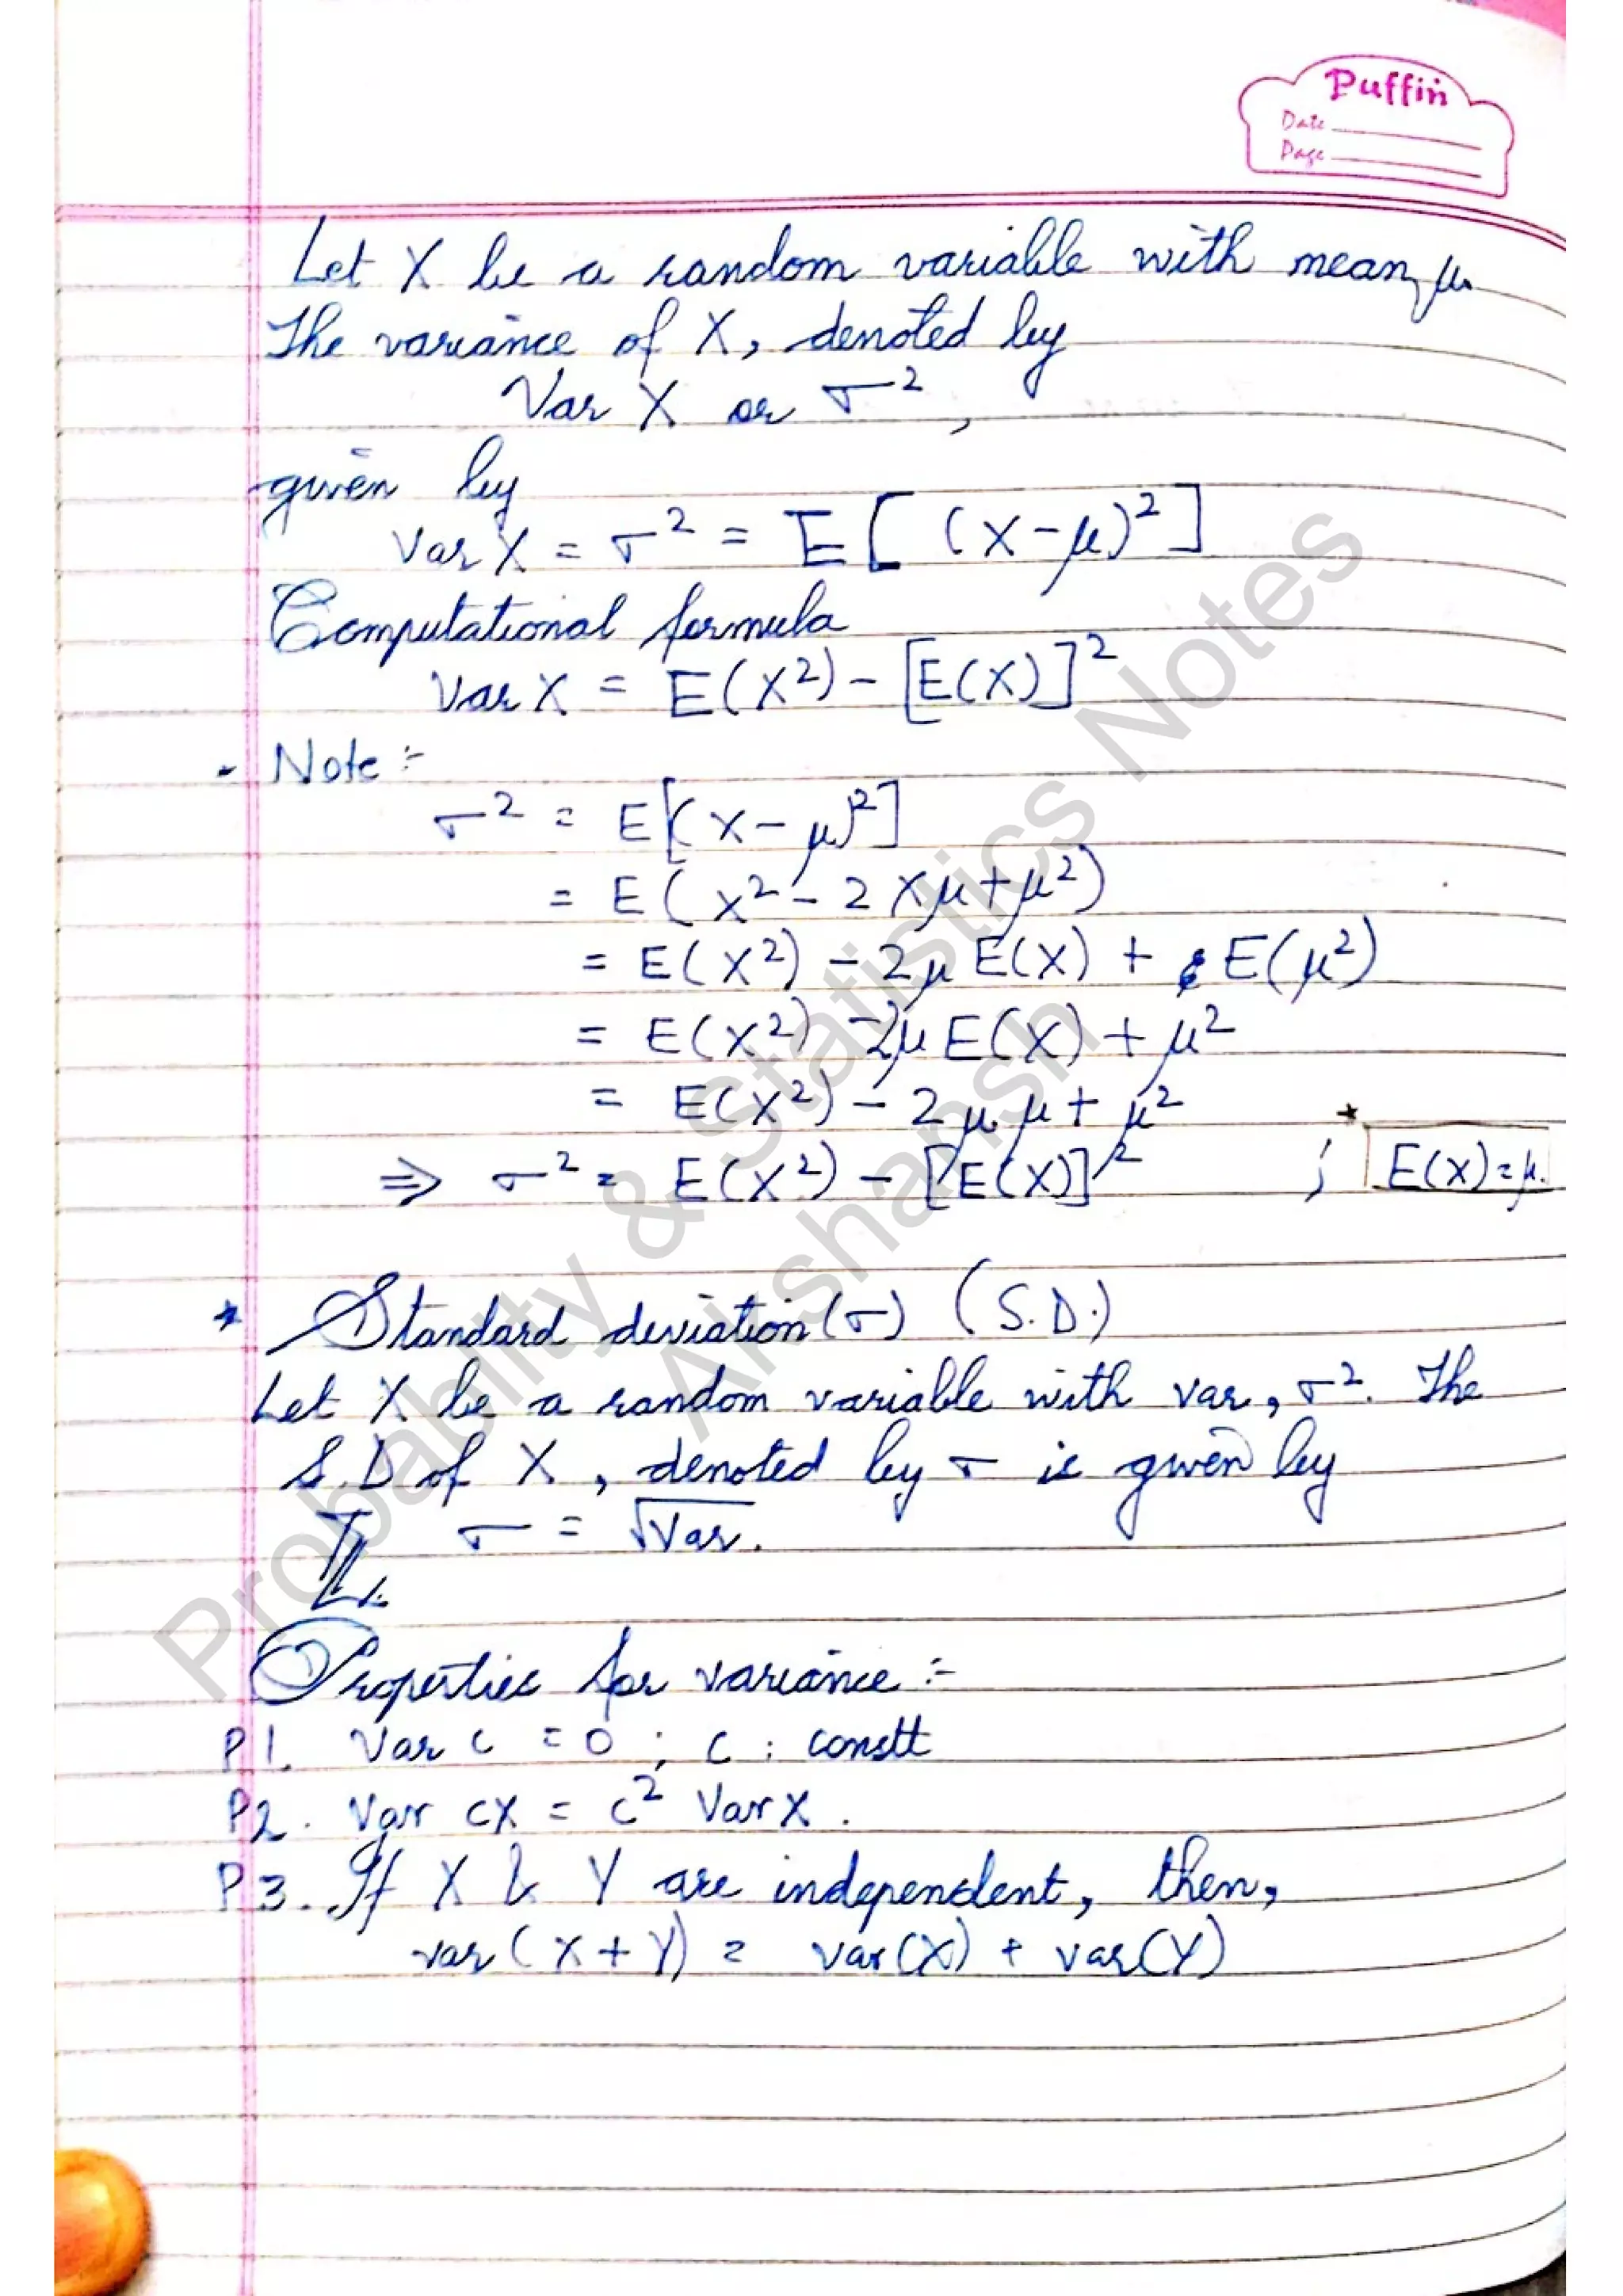 Puffin
Date
Page
Let X be a random variable with mean, μ.
The variance of X, denoted by
Var X or σ²,
given by
Var X = σ² = E[ (X-μ)²]
Computational formula
Var X = E(X²) - [E(X)]²
- Note :-
σ² = E[(X-μ)²]
= E(X² - 2Xμ + μ²)
= E(X²) - 2μ E(X) + E(μ²)
= E(X²) - 2μ E(X) + μ²
= E(X²) - 2μ.μ + μ²
⇒ σ² = E(X²) - [E(X)]² ; * E(X) = μ.
* Standard deviation (σ) (S.D.)
Let X be a random variable with var, σ². The
S.D of X, denoted by σ is given by
σ = √Var.
Properties for variance :-
P1. Var c = 0 ; c : constt
P2. Var cX = c² Var X.
P3. If X & Y are independent, then,
var (X + Y) = var(X) + var(Y)
Probablity & Statistics Notes
Akshansh